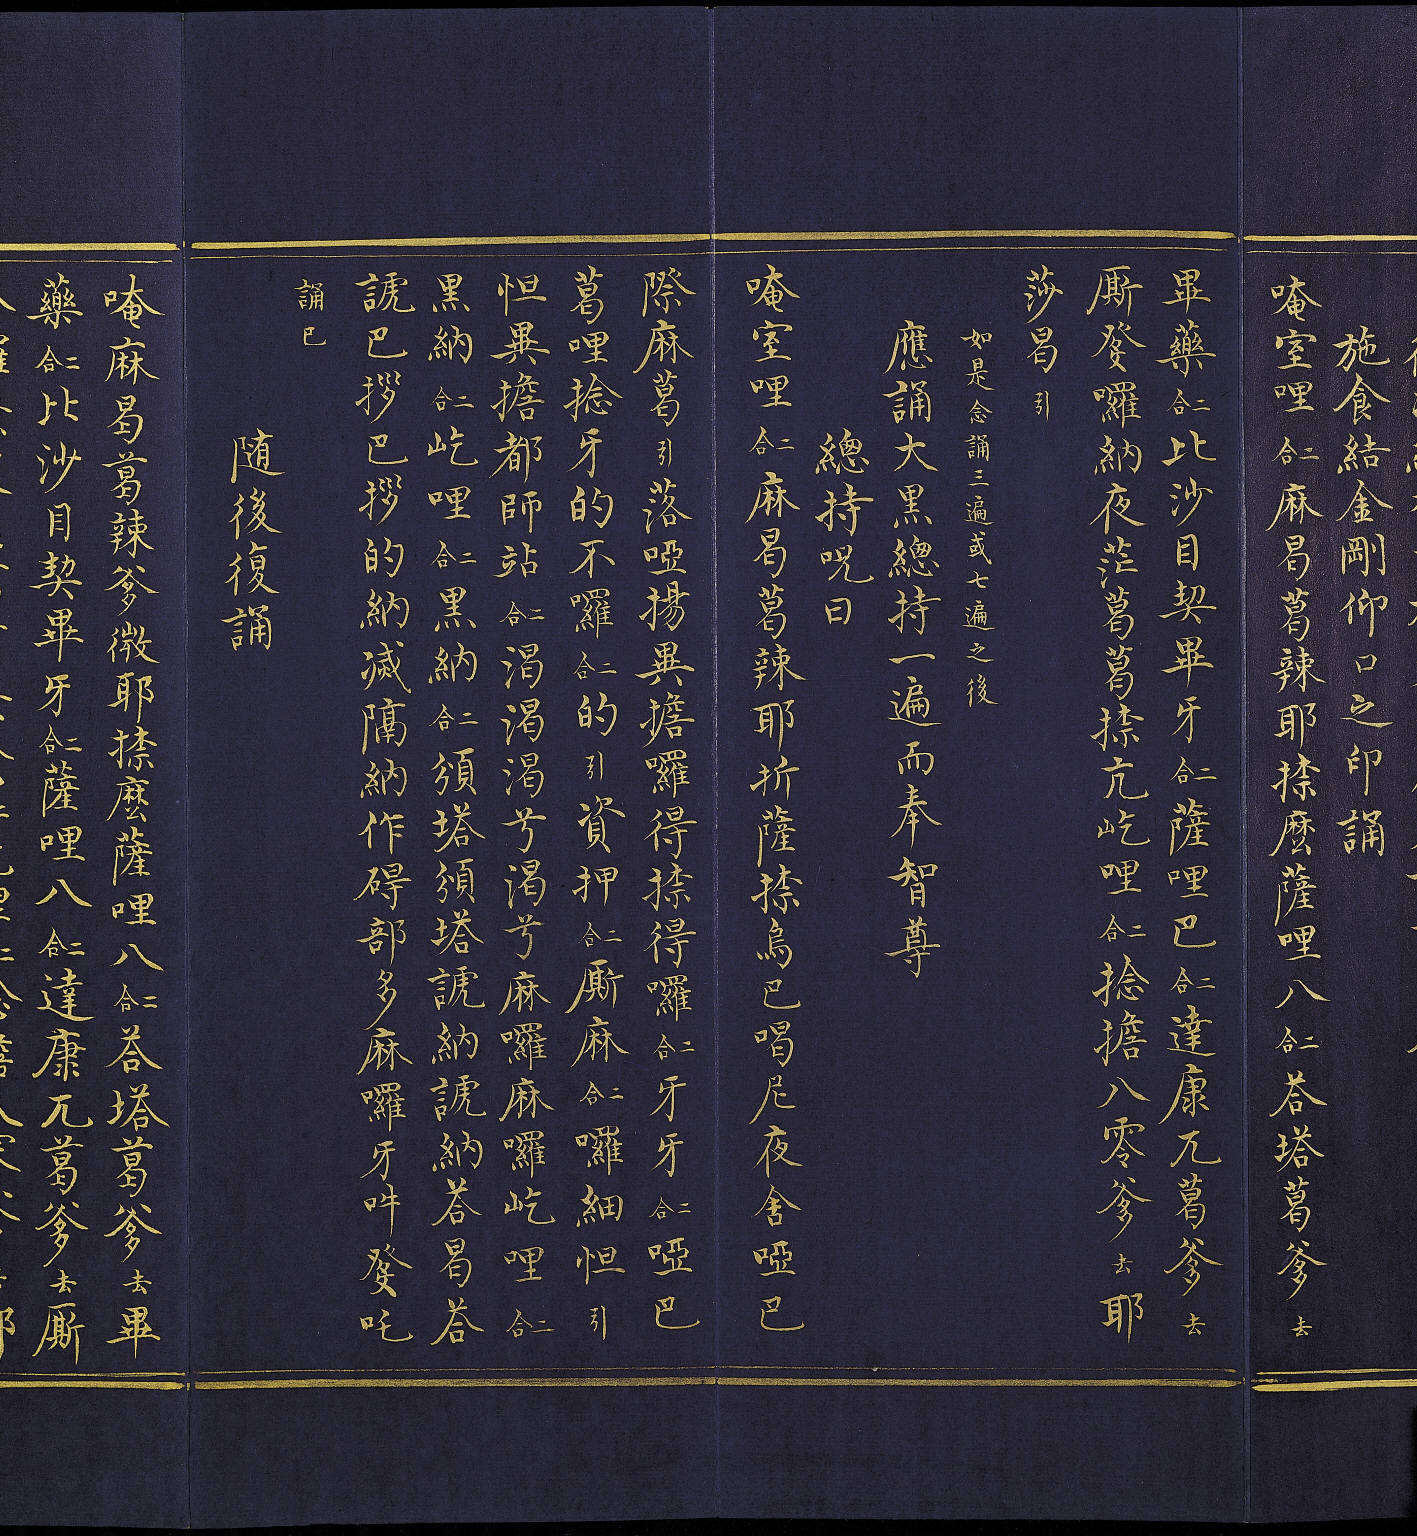 施食結金剛仰口之印誦
唵室哩二合麻曷葛辣耶捺麼薩哩八二合荅塔葛爹去
畢藥二合比沙目契畢牙二合薩哩巴二合達康兀葛爹去
厮發囉納夜茫葛葛捺亢屹哩二合捴擔八零爹去耶
莎曷引
如是念誦三遍或七遍之後
應誦大黑總持一遍而奉智尊
總持呪曰
唵室哩二合麻曷葛辣耶折薩捺烏巴喝尼夜舍啞巴
際麻葛引落啞揚異擔囉得捺得囉二合牙牙二合啞巴
葛哩捴牙的不囉二合的引資押二合厮麻二合囉細怛引
怛異擔都師站二合渴渴渴兮渴兮麻囉麻囉屹哩二合
黑納二合屹哩二合黑納二合須塔須塔謕納謕納荅曷荅
謕巴拶巴拶的納滅隔納作碍部多麻囉牙吽發吒
誦已
随後復誦
唵麻曷葛辣爹微耶捺麼薩哩八二合荅塔葛爹去畢
藥二合比沙目契畢牙二合薩哩八二合達康兀葛爹去厮